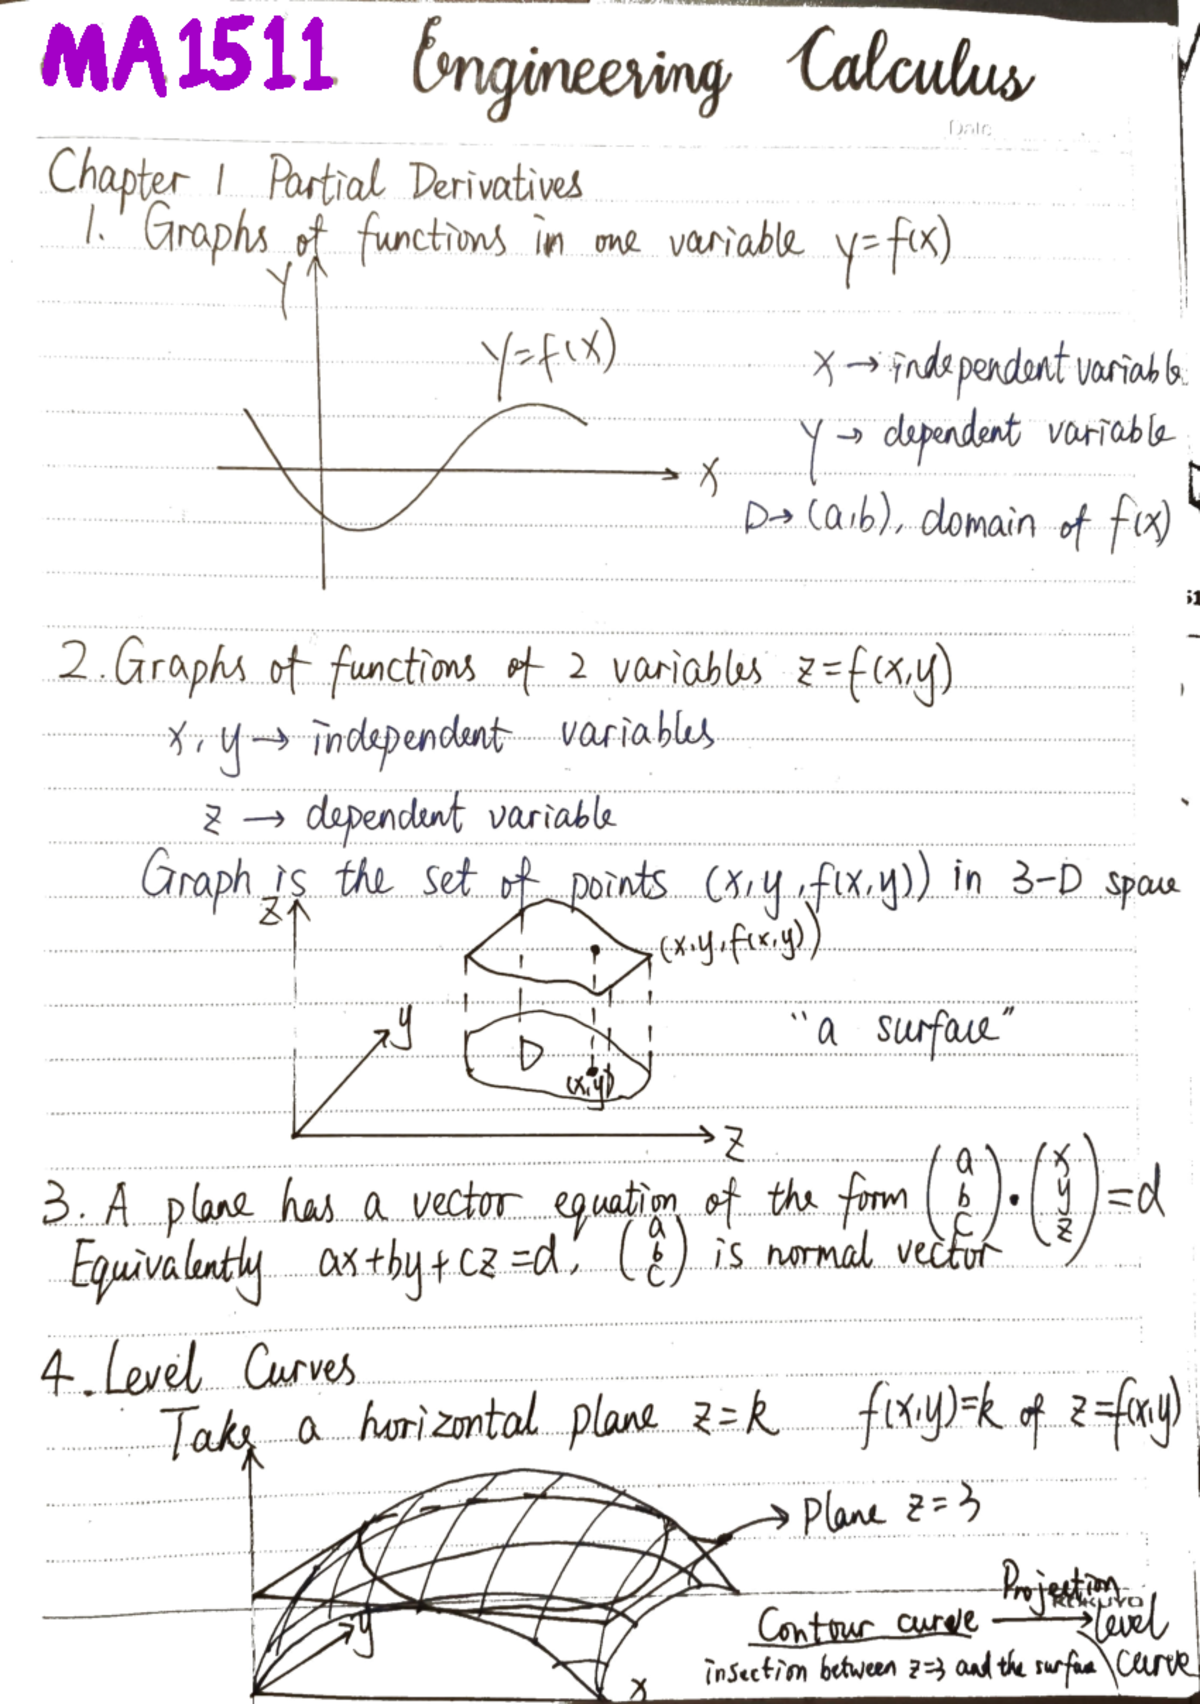 MA1511 Engineering Calculus
Date
Chapter 1 Partial Derivatives
1. Graphs of functions in one variable y=f(x)
Y
y=f(x)
X
X → independent variable
Y → dependent variable
D → (a,b), domain of f(x)
2. Graphs of functions of 2 variables z=f(x,y)
x, y → independent variables
z → dependent variable
Graph is the set of points (x,y,f(x,y)) in 3-D space
Z
(x,y,f(x,y))
y
D
(x,y)
"a surface"
Z
3. A plane has a vector equation of the form (a b c)·(x y z)=d
Equivalently ax+by+cz=d, (a b c) is normal vector
4. Level Curves
Take a horizontal plane z=k f(x,y)=k of z=f(x,y)
Plane z=3
y
x
Projection
KOKUYO
Contour curve → level curve
insection between z=3 and the surface